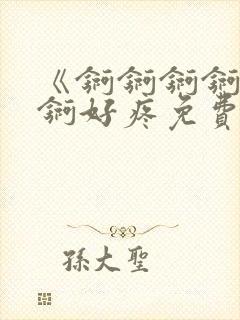 《锕锕锕锕
锕好疼免費
孫大聖